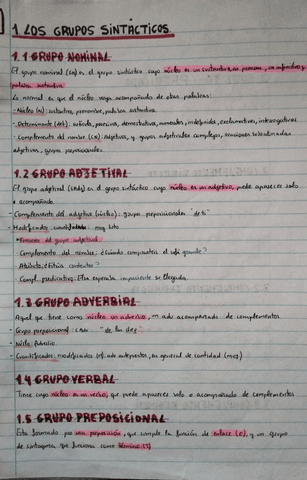 1. LOS GRUPOS SINTÁCTICOS
1.1 GRUPO NOMINAL
El grupo nominal (GN) es el grupo sintáctico cuyo núcleo es un sustantivo, un pronombre, un infinitivo y
palabra sustantiva
Lo normal es que el núcleo vaya acompañado de otras palabras:
- Núcleo (N): sustantivo, pronombre, palabra sustantiva
- Determinante (det): artículo, posesivo, demostrativo, numerales, indefinidos, exclamativos, interrogativos
- Complemento del nombre (CN): adjetivos, y grupos adjetivales complejos, oraciones subordinadas
adjetivas, grupos preposicionales.
1.2 GRUPO ADJETIVAL
El grupo adjetival (GAdj) es el grupo sintáctico cuyo núcleo es un adjetivo, puede aparecer solo
o acompañado.
- Complemento del adjetivo (núcleo): grupo preposicional
- Modificador cuantificador: muy listo
• Funciones del grupo adjetival
- Complemento del nombre: ¿Cuándo compraste el sofá grande?
- Atributo: ¿Estás contento?
- Compl. predicativo: Ella esperaba impaciente su llegada
1.3 GRUPO ADVERBIAL
Aquel que tiene como núcleo un adverbio, acompañado de complementos
- Grupo preposicional:
- Núcleo: Adverbio
- Cuantificadores: modificadores adv. antepuestos, en general de cantidad (muy)
1.4 GRUPO VERBAL
Tiene cuyo núcleo es un verbo, que puede aparecer solo o acompañado de complementos
1.5 GRUPO PREPOSICIONAL
Esta formado por una preposición, que cumple la función de enlace (E), y un grupo
de sintagma que funciona como término (T)